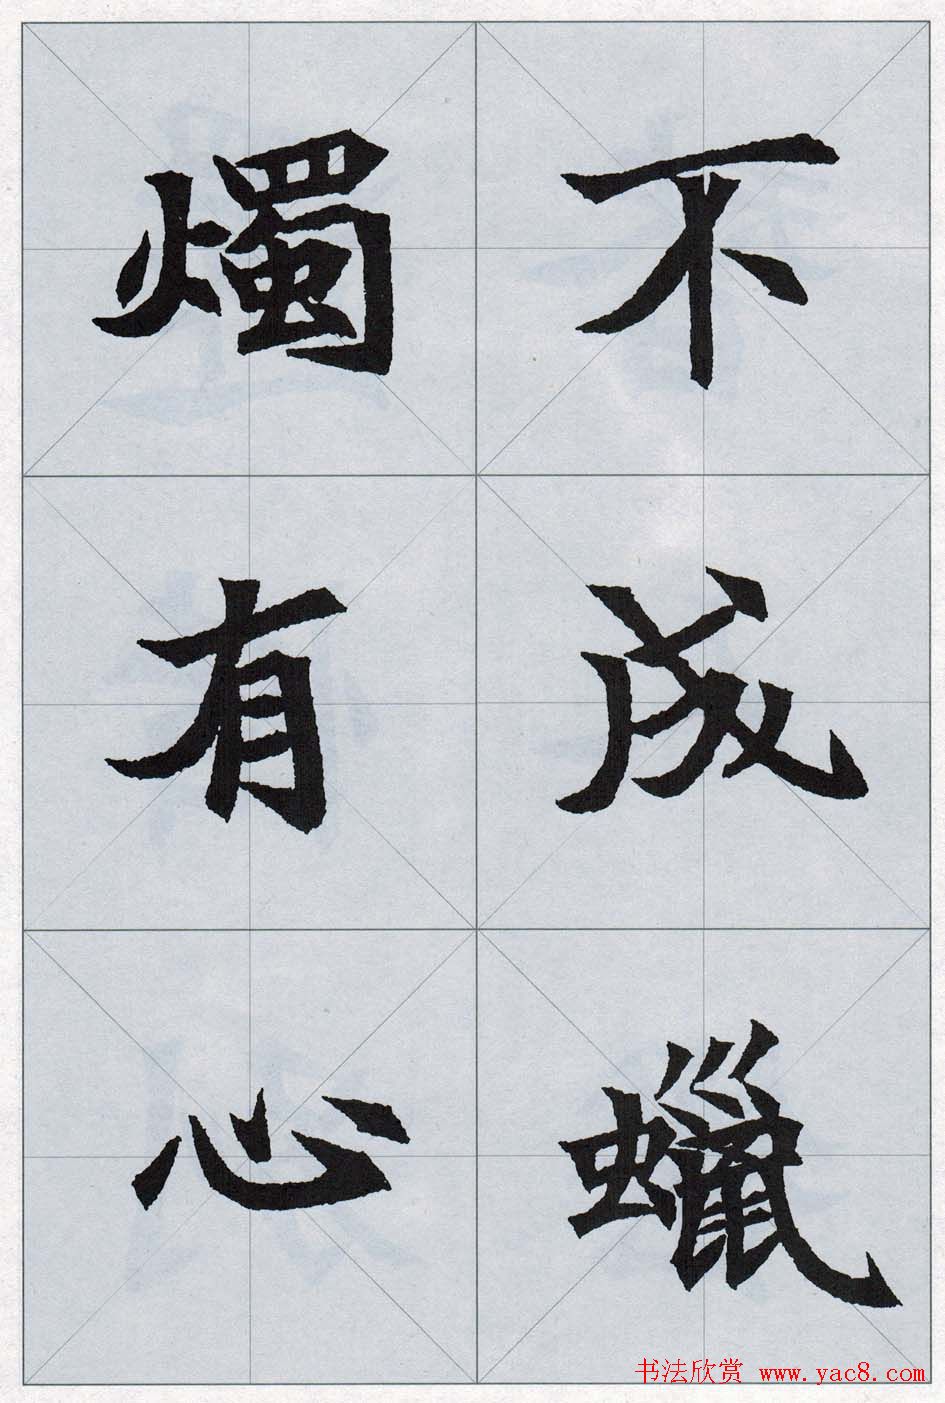 不成蠟
燭有心
书法欣赏 www.yac8.com